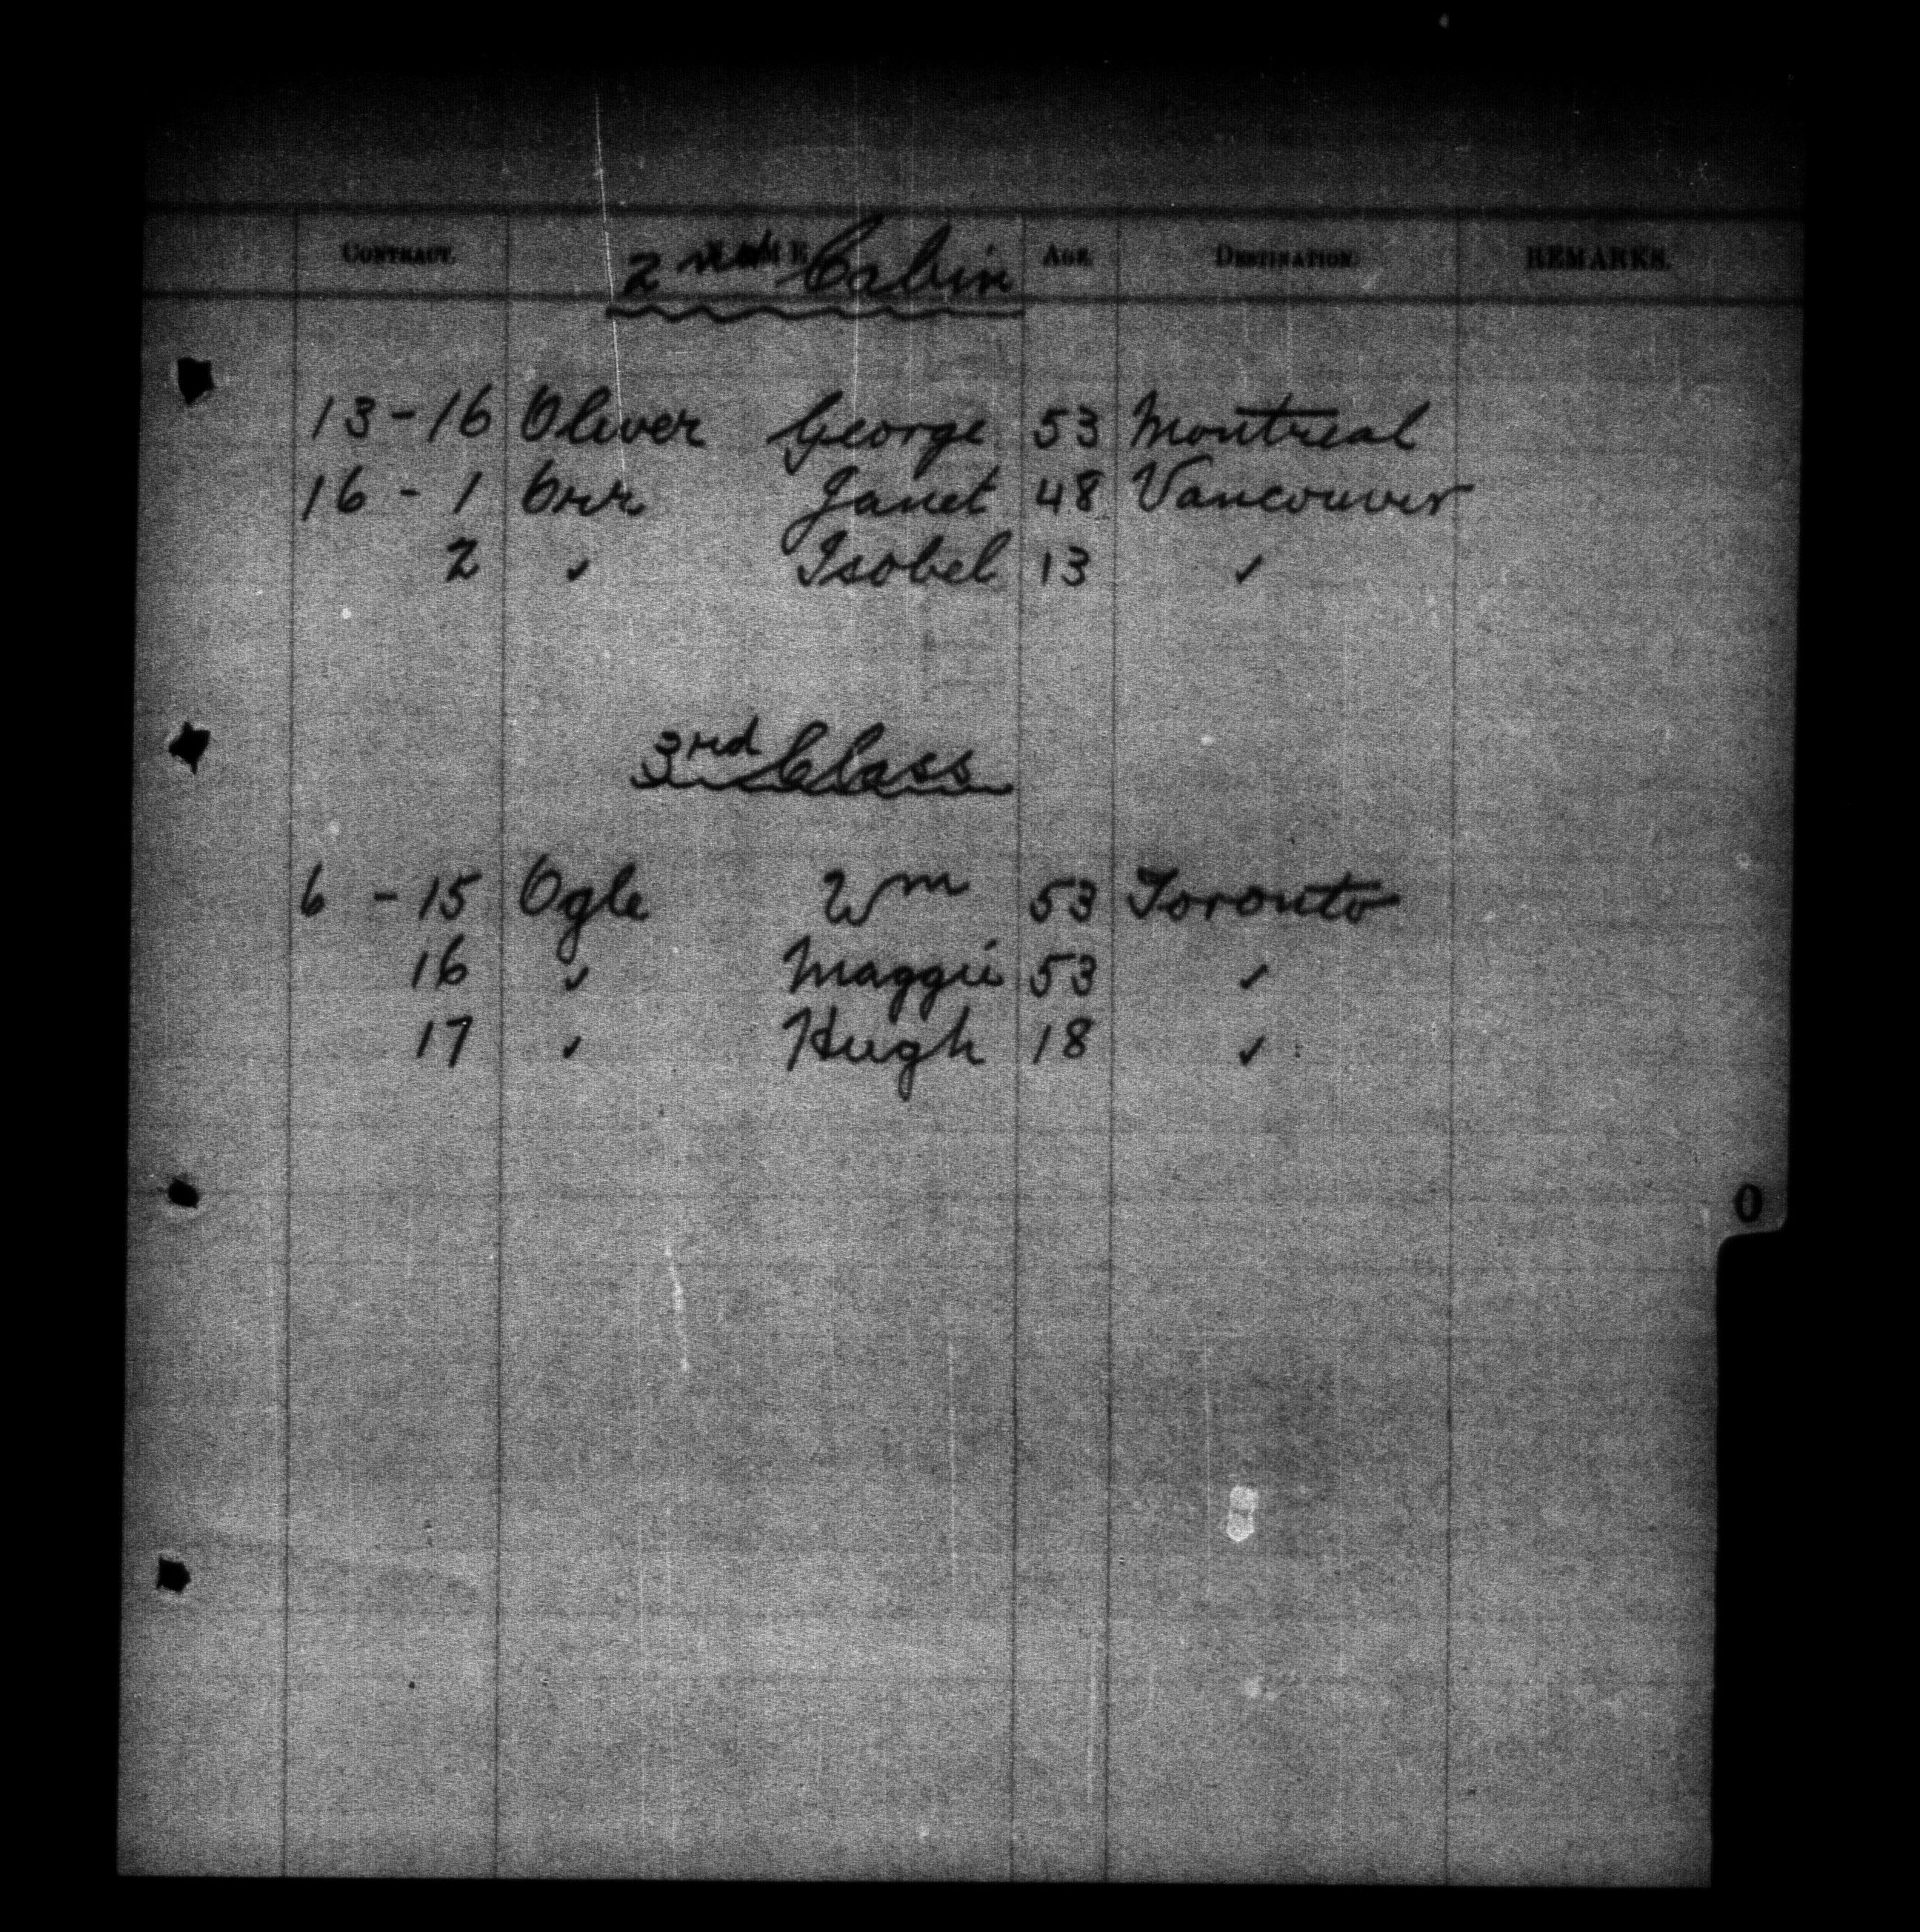 CONTRACT. NAME AGE DESTINATION REMARKS.
2nd Cabin
13-16 Oliver George 53 Montreal
16 - 1 Orr Janet 48 Vancouver
2 ✓ Isobel 13 ✓
3rd Class
6 - 15 Ogle Wm 53 Toronto
16 ✓ Maggie 53 ✓
17 ✓ Hugh 18 ✓
O